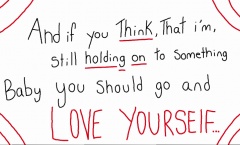 And if you Think, That i'm,
still holding on to something
Baby you should go and
LOVE YOURSElF...